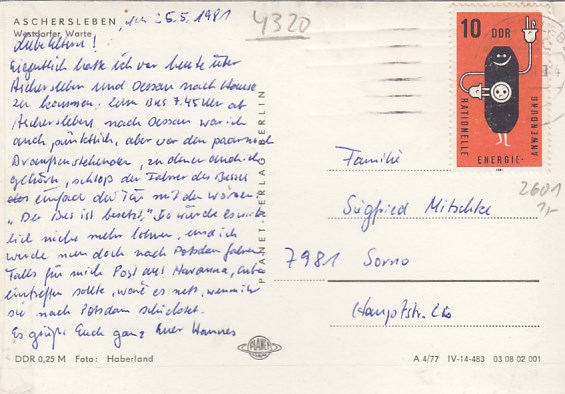 ASCHERSLEBEN
Westdorfer Warte
4320
, den 5.5.1981
Liebe Eltern!
Eigentlich hatte ich vor heute über
Aschersleben und Dessau nach Hause
zu kommen. Zum Bus 7.45 Uhr ab
Aschersleben nach Dessau war ich
auch pünktlich, aber vor den paar noch
Draußenstehenden, zu denen auch ich
gehörte, schloß der Fahrer des Busses
einfach die Tür mit den Worten:
"Der Bus ist besetzt." So würde es wirk-
lich nicht mehr lohnen, und ich
werde nun doch nach Potsdam fahren.
Falls für mich Post aus Havanna
eintreffen sollte, wäre es nett, wenn ihr
sie nach Potsdam schicktet.
Es grüßt Euch ganz Euer Hannes
DDR 0,25 M Foto: Haberland
PLANET-VERLAG BERLIN
PLANET
10 DDR
RATIONELLE
ENERGIE-
ANWENDUNG
1981
2601
1,-
Familie
Siegfried Mitschke
7981 Sorno
Hauptstr.
A 4/77 IV-14-483 03 08 02 001